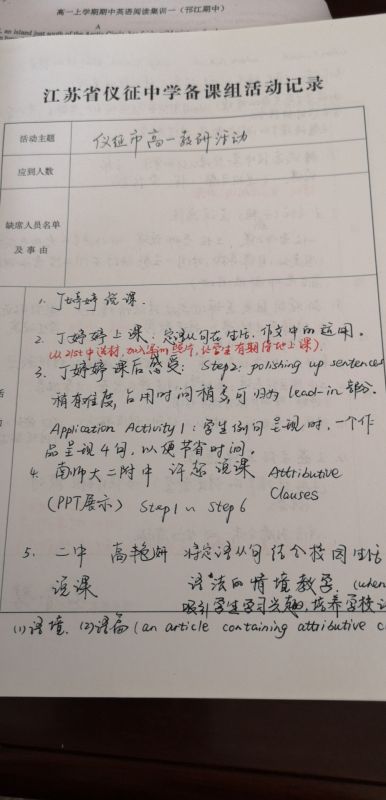 高一上学期期中英语阅读集训一（邗江期中）
A
an island just south of the Arctic Circle
江苏省仪征中学备课组活动记录
活动主题 仪征市高一教研活动
应到人数
缺席人员名单
及事由
1. 丁婷婷说课.
2. 丁婷婷上课：定语从句在生活、作文中的运用.
(从21st中选材，加入学生照片，让学生有期待地上课).
3. 丁婷婷课后感受：Step2: polishing up sentences
稍有难度，占用时间稍多，可归为lead-in部分.
Application Activity 1：学生例句呈现时，一个作
品呈现4句，以便节省时间.
4. 南师大二附中 许 说课 Attributive
Clauses
(PPT展示) Step1~Step 6
5. 二中 高艳 将定语从句结合校园生活
说课 语法的情境教学. (when
吸引学生学习兴趣，培养学
(1)语境. (2)语篇 (an article containing attributive c